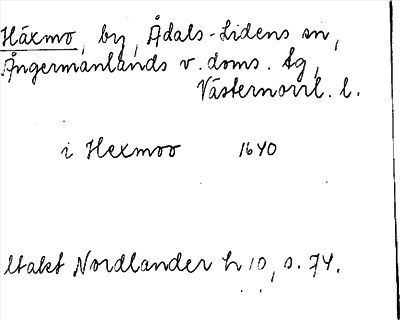 Häxmo, by, Ådals-Lidens sn,
Ångermanlands v. doms. tg,
Västernorrl. l.
i Hexmoo 1640
Utakt Nordlander h 10, s. 74.